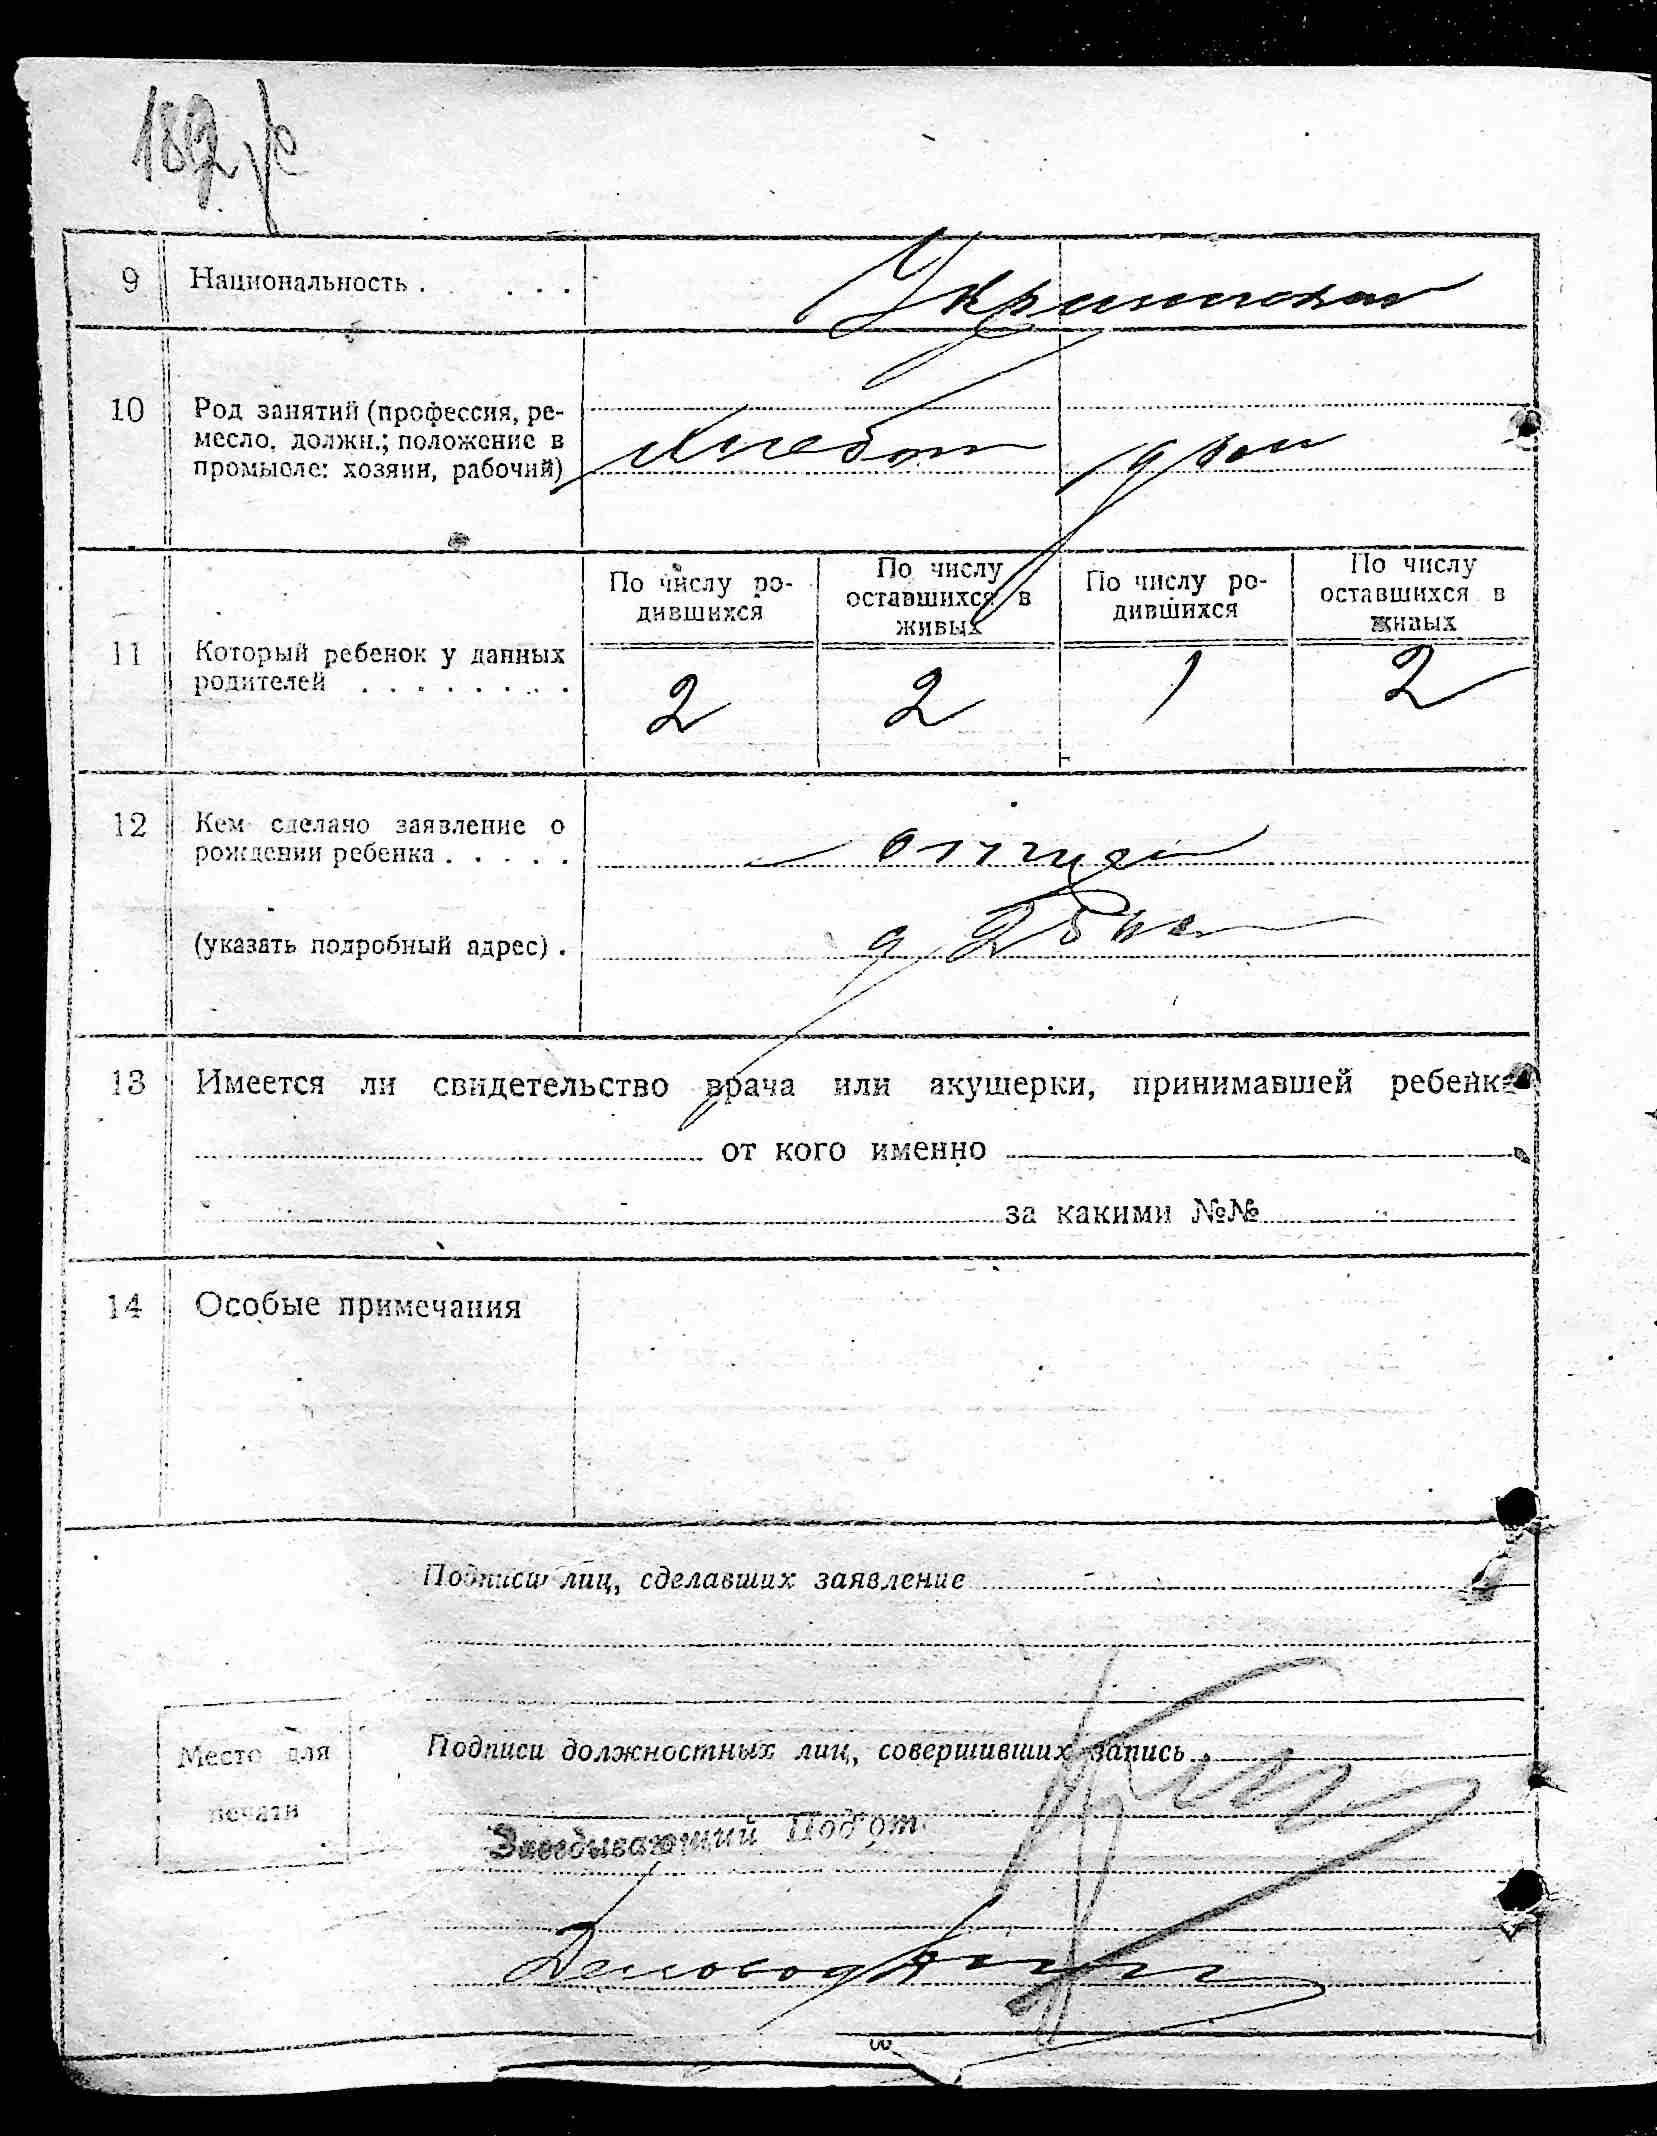 9 Национальность . . . . Украинская
10 Род занятий (профессия, ре-
месло, должн.; положение в
промысле: хозяин, рабочий)
Хлебоп
По числу ро-
дившихся
По числу
оставшихся в
живых
По числу ро-
дившихся
По числу
оставшихся в
живых
11 Который ребенок у данных
родителей . . . . . . . .
2 2 1 2
12 Кем сделано заявление о
рождении ребенка . . . . .
отцем
(указать подробный адрес) .
13 Имеется ли свидетельство врача или акушерки, принимавшей ребенка
от кого именно
за какими №№
14 Особые примечания
Подписи лиц, сделавших заявление
Место для
печати
Подписи должностных лиц, совершивших запись
Заведывающий Под'от
Деловод